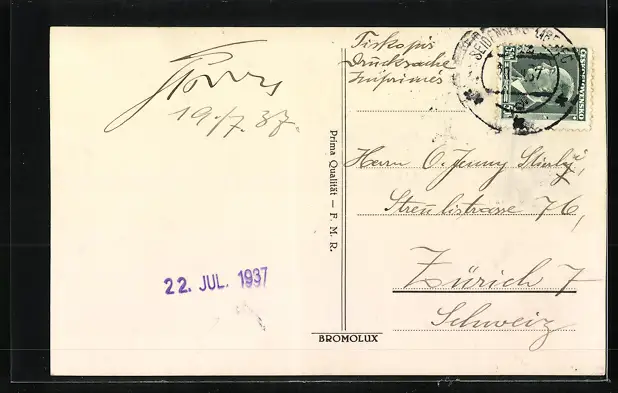 19./7. 37.
22. JUL. 1937
Prima Qualität — F. M. R.
BROMOLUX
Tiskopis
Drucksache
Imprimés
ČESKOSLOVENSKO
50
Herrn O. Jenny
Streulistrasse 76,
Zürich 7
Schweiz